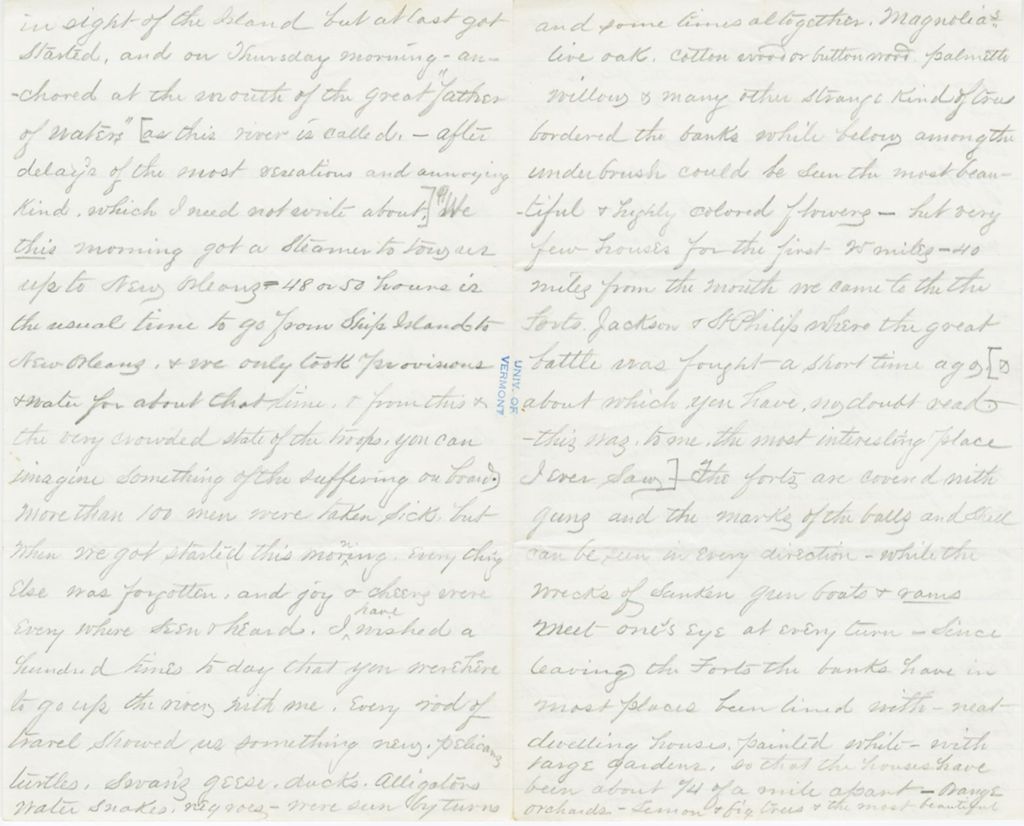 in sight of the Island but at last got
started, and on Thursday morning - an-
-chored at the mouth of the great "father
of waters" [as this river is called. - after
delay's of the most vexations and annoying
kind. which I need not write about.] "We
this morning got a Steamer to tow us
up to New Orleans - 48 or 50 hours is
the usual time to go from Ship Island to
New Orleans. & we only took provisions
& water for about that time. & from this &
the very crowded state of the troops. you can
imagine something of the suffering on board.
More than 100 men were taken sick. but
when we got started this morning. Every thing
Else was forgotten. and joy & cheers were
Every where seen & heard. I have wished a
hundred times to day that you were here
to go up the river with me. Every rod of
travel showed us something new. pelicans
turtles. Swan's geese. ducks. Alligators
Water Snakes. negroes - were seen by turns
UNIV. OF
VERMONT
and some times altogether. Magnolias.
live oak. cotton wood or button wood. palmetto
willows & many other strange kind of trees
bordered the banks while below among the
underbrush could be seen the most beau-
-tiful & highly colored flowers - but very
few houses for the first 25 miles - 40
miles from the mouth we came to the the
Forts. Jackson & St Philips where the great
battle was fought a short time ago [&
about which you have, no doubt read -
-this was. to me. the most interesting place
I ever saw] "The forts are covered with
guns and the marks of the balls and Shell
can be seen in every direction - while the
wrecks of Sunken gun boats & rams
meet one's eye at every turn - Since
leaving the Forts the banks have in
most places been lined with - neat
dwelling houses. painted white - with
large gardens. so that the houses have
been about 1/4 of a mile apart - Orange
orchards. - Lemon & fig trees & the most beautiful